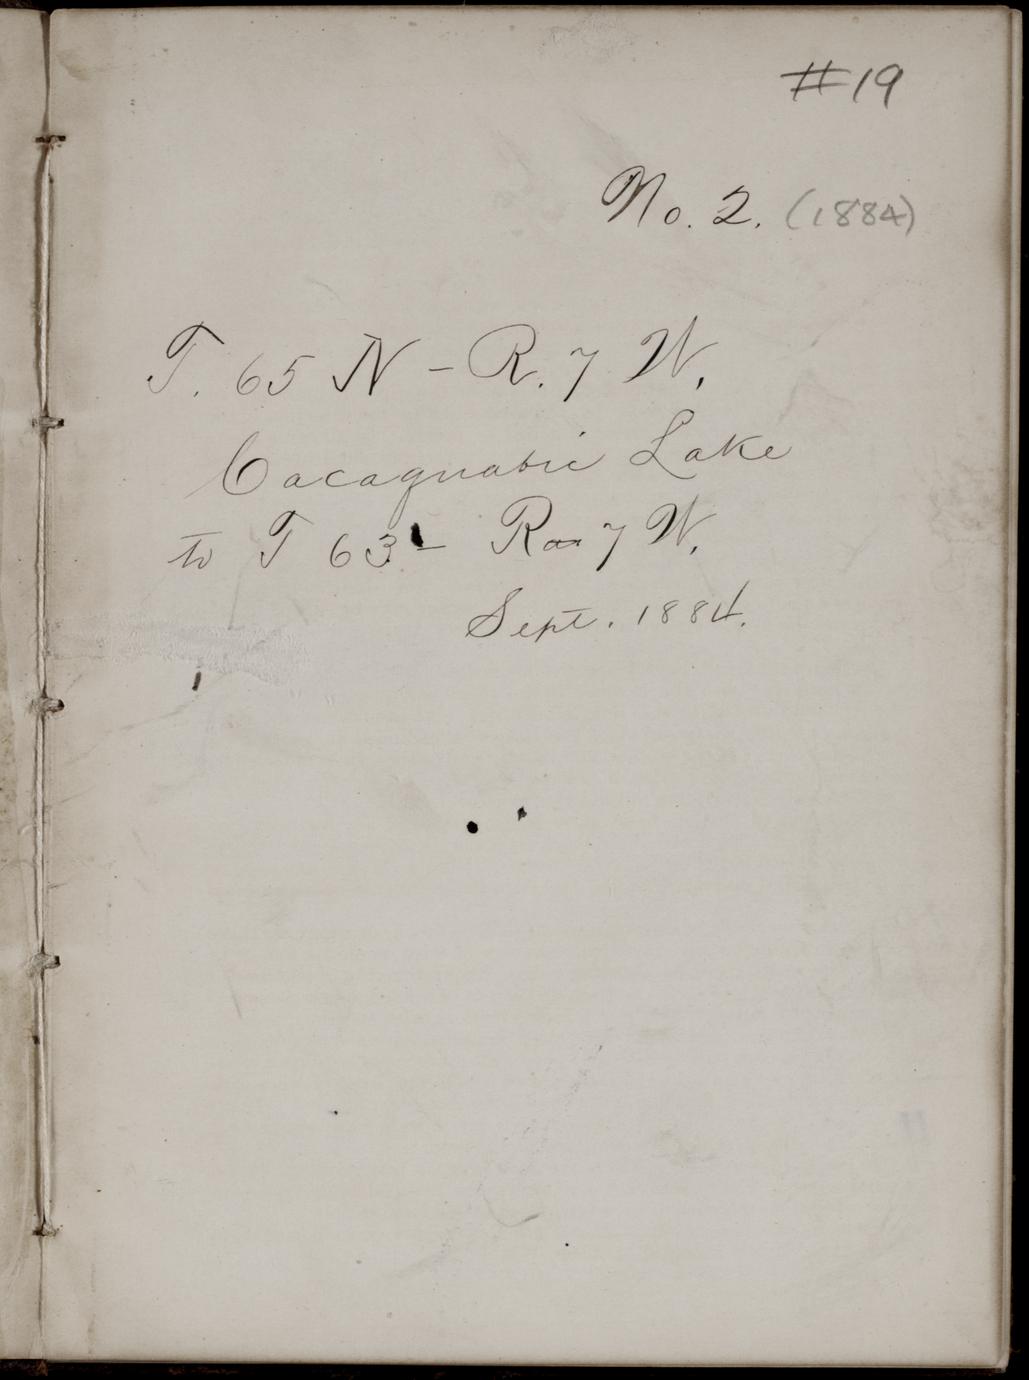 #19
No. 2. (1884)
T. 65 N - R. 7 W.
Cacaquabic Lake
to T 63 - Ra 7 W.
Sept. 1884.